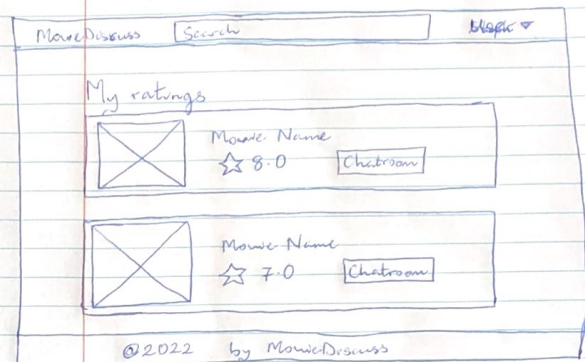 MovieDiscuss Search
My ratings
Movie Name
8.0 Chatroom
Movie Name
7.0 Chatroom
©2022 by MovieDiscuss